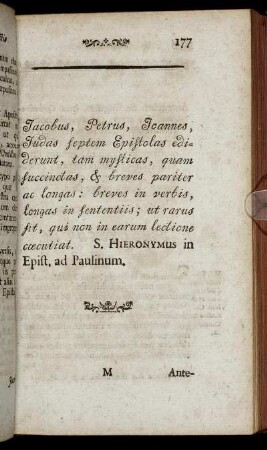 177
Jacobus, Petrus, Joannes,
Judas septem Epistolas edi-
derunt, tam mysticas, quam
succinctas, & breves pariter
ac longas: breves in verbis,
longas in sententiis; ut rarus
sit, qui non in earum lectione
cæcutiat. S. HIERONYMUS in
Epist. ad Paulinum.
M Ante-